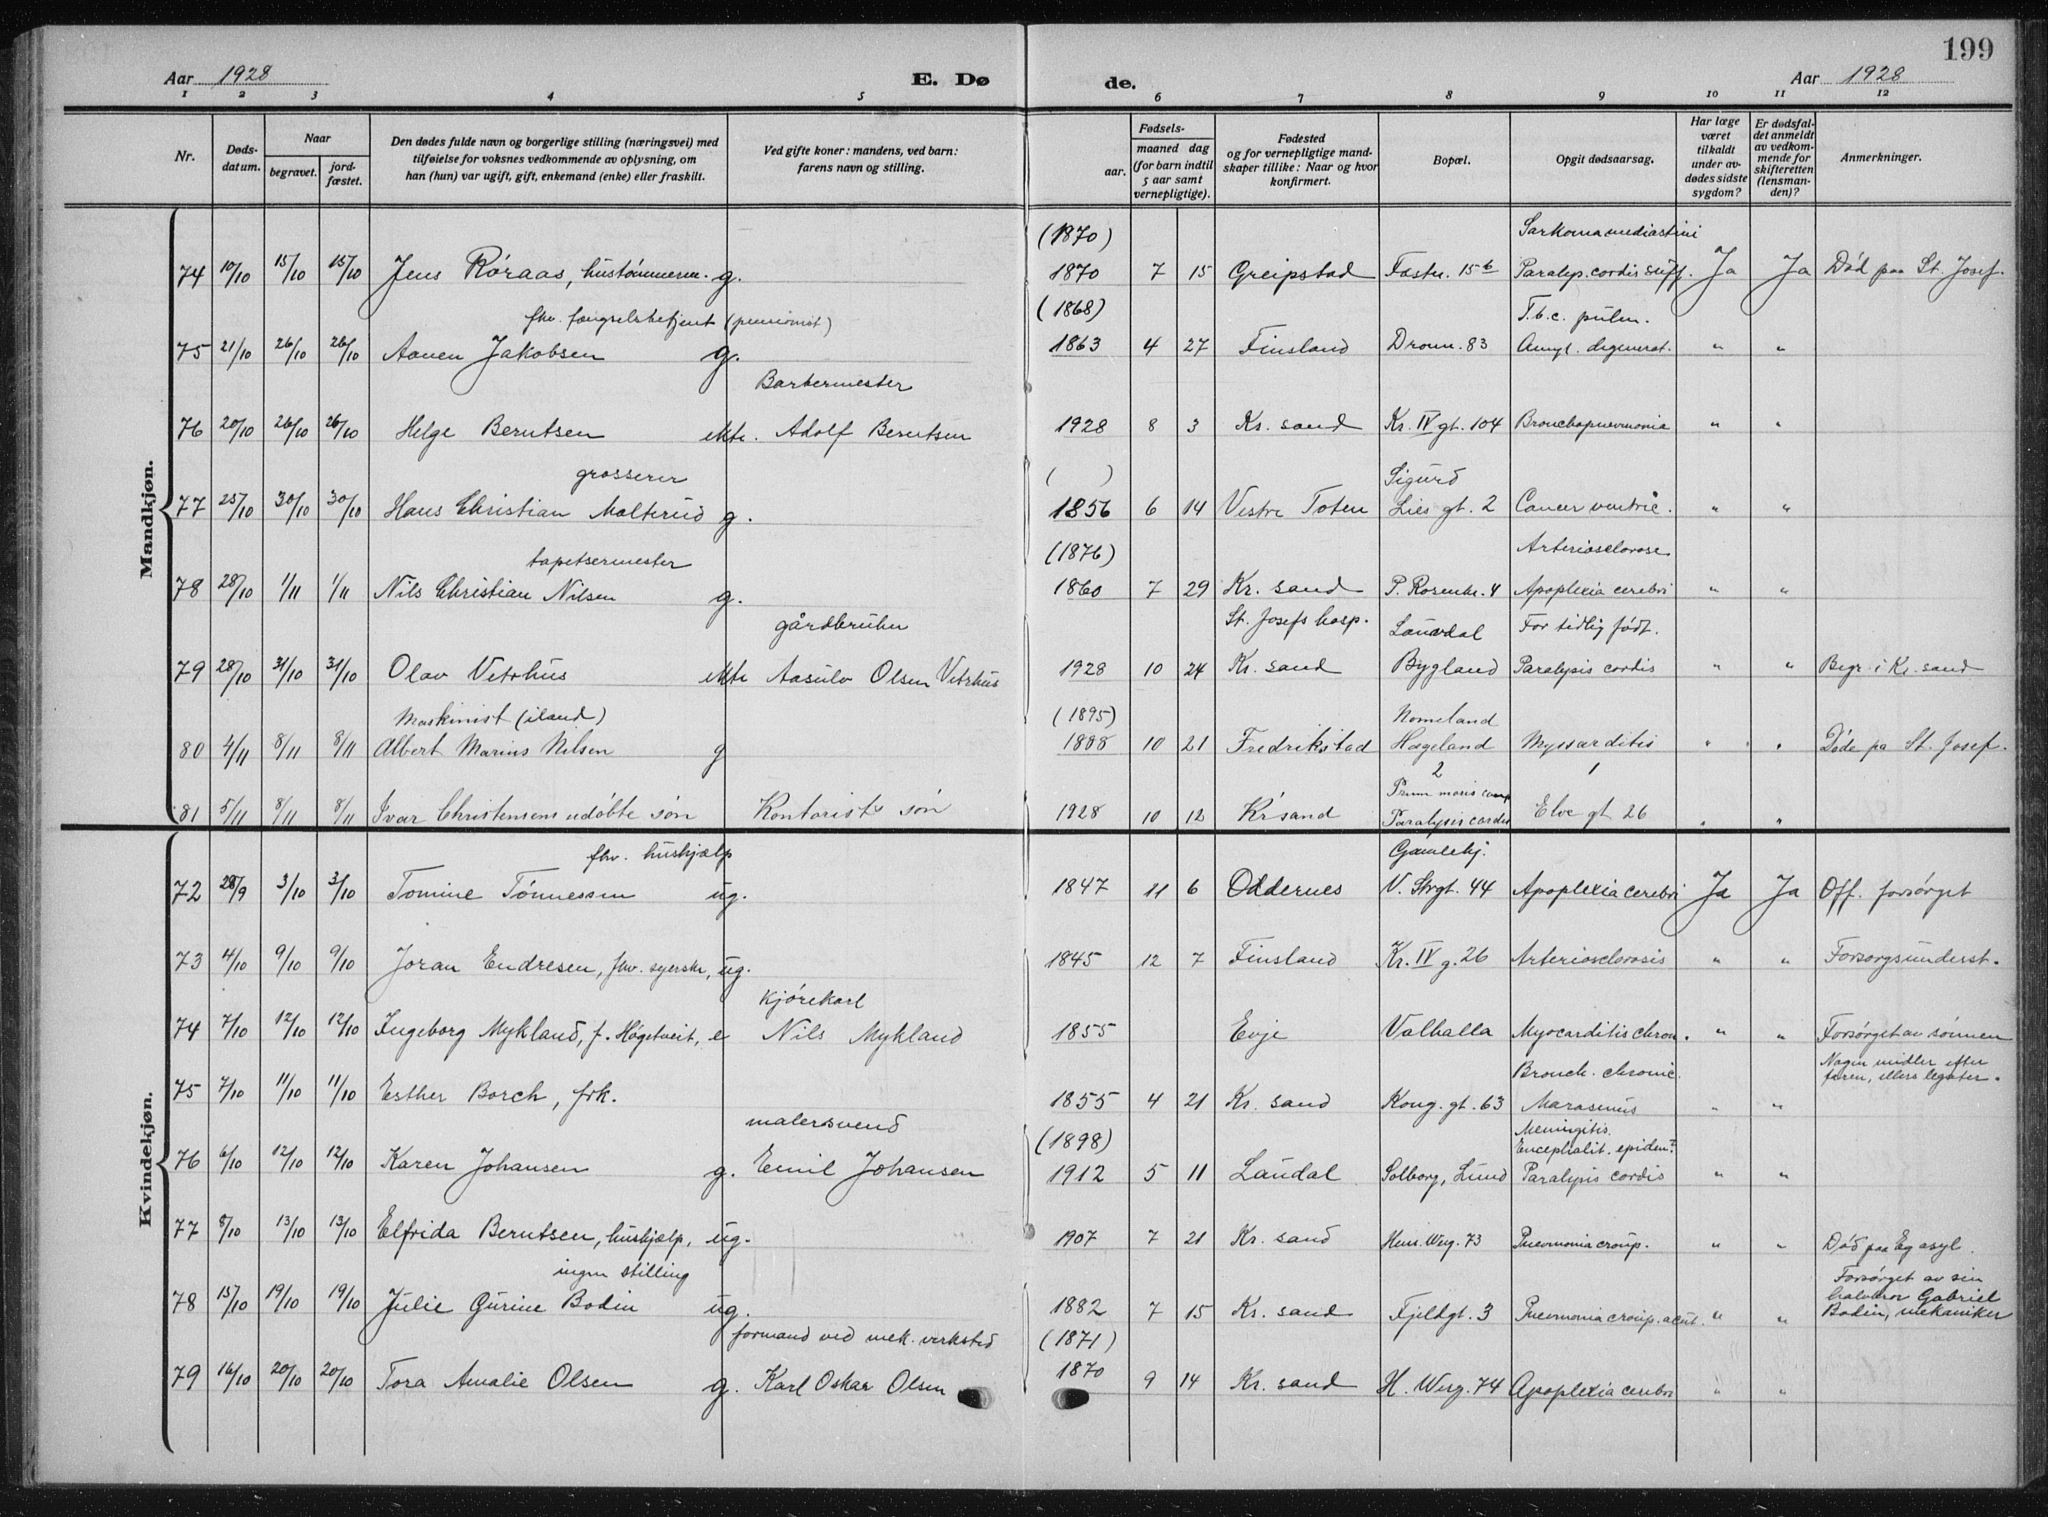 199
Aar 1928 E. Dø de. Aar 1928
1 2 3 4 5 6 7 8 9 10 11 12
Nr. Døds-datum. Naar begravet. jord-fæstet. Den dødes fulde navn og borgerlige stilling (næringsvei) med tilføielse for voksnes vedkommende av oplysning, om han (hun) var ugift, gift, enkemand (enke) eller fraskilt. Ved gifte koner: mandens, ved barn: farens navn og stilling. Fødsels- aar. maaned dag (for barn indtil 5 aar samt vernepligtige). Fødested og for vernepligtige mand-skaper tillike: Naar og hvor konfirmert. Bopæl. Opgit dødsaarsag. Har læge været tilkaldt under av-dødes sidste sygdom? Er dødsfal-det anmeldt av vedkom-mende for skifteretten (lensman-den)? Anmerkninger.
Mandkjøn.
(1870) Sarkoma mediastini
74 10/10 15/10 15/10 Jens Røraas, hustømmerm. g. 1870 7 15 Greipstad Festn. 15b Paralys. cordis suff. Ja Ja Død paa St. Josef.
fhv. fængselsbetjent (pensionist) (1868) T.b.c. pulm.
75 21/10 26/10 26/10 Aanen Jakobsen g. 1863 4 27 Finsland Dronn. 83 Amyl. degenerat. " "
Barbermester
76 20/10 26/10 26/10 Helge Berntsen ekte. Adolf Berntsen 1928 8 3 Kr. sand Kr. IV gt. 104 Bronchopneumonia " "
grosserer ( ) Sigurd
77 25/10 30/10 30/10 Hans Christian Malterud g. 1856 6 14 Vestre Toten Lies gt. 2 Cancer ventric. " "
tapetsermester (1876) Arterioselorose
78 28/10 1/11 1/11 Nils Christian Nilsen g. 1860 7 29 Kr. sand P. Rosenkr. 4 Apoplexia cerebri " "
gårdbruker St. Josefs hosp. Lauvdal For tidlig født.
79 28/10 31/10 31/10 Olav Vetrhus ekte Aasulv Olsen Vetrhus 1928 10 24 Kr. sand Bygland Paralysis cordis " " Begr. i Kr. sand
Maskinist (iland) (1895) Homeland
80 4/11 8/11 8/11 Albert Marius Nilsen g 1888 10 21 Fredrikstad Hægeland Myocarditis " " Døde pa St. Josef.
2 1
81 5/11 8/11 8/11 Ivar Christensens udøbte søn Kontorists søn 1928 10 12 Kr.sand Paralysis cordis Elve gt 26 " "
Kvindekjøn.
fhv. hushjælp Gamlehj.
72 28/9 3/10 3/10 Tomine Tønnessen ug. 1847 11 6 Oddernes V. Strgt. 44 Apoplexia cerebri Ja Ja Off. forsørget
73 4/10 9/10 9/10 Joran Endresen, fhv. syerske, ug. 1845 12 7 Finsland Kr. IV g. 26 Arterioselorosis " " Forsorgsunderst.
kjørekarl
74 7/10 12/10 12/10 Ingeborg Mykland, f. Høgetveit, e Nils Mykland 1855 Evje Valhalla Myocarditis chron. " " Forsørget av sønnen
Bronch. chronic. Nogen midler efter faren, ellers legater.
75 7/10 11/10 11/10 Esther Borch, frk. 1855 4 21 Kr. sand Kong. gt. 63 Marasmus " "
malersvend (1898) Meningitis. Encephalit. epidem?
76 6/10 12/10 12/10 Karen Johansen g. Emil Johansen 1912 5 11 Laudal Solborg, Lund Paralysis cordis " "
77 8/10 13/10 13/10 Elfrida Berntsen, hushjælp, ug. 1907 7 21 Kr. sand Hens. Werg. 73 Pneumonia croup. " " Død paa Eg asyl.
ingen stilling Forsørget av sin halvbror Gabriel
78 15/10 19/10 19/10 Julie Gurine Bodin ug. 1882 7 15 Kr. sand Fjeldgt. 3 Pneumonia croup. acut. " " Bodin, mekaniker
formand ved mek. verksted (1871)
79 16/10 20/10 20/10 Tora Amalie Olsen g. Karl Oskar Olsen 1870 9 14 Kr. sand H. Werg. 74 Apoplexia cerebri " "